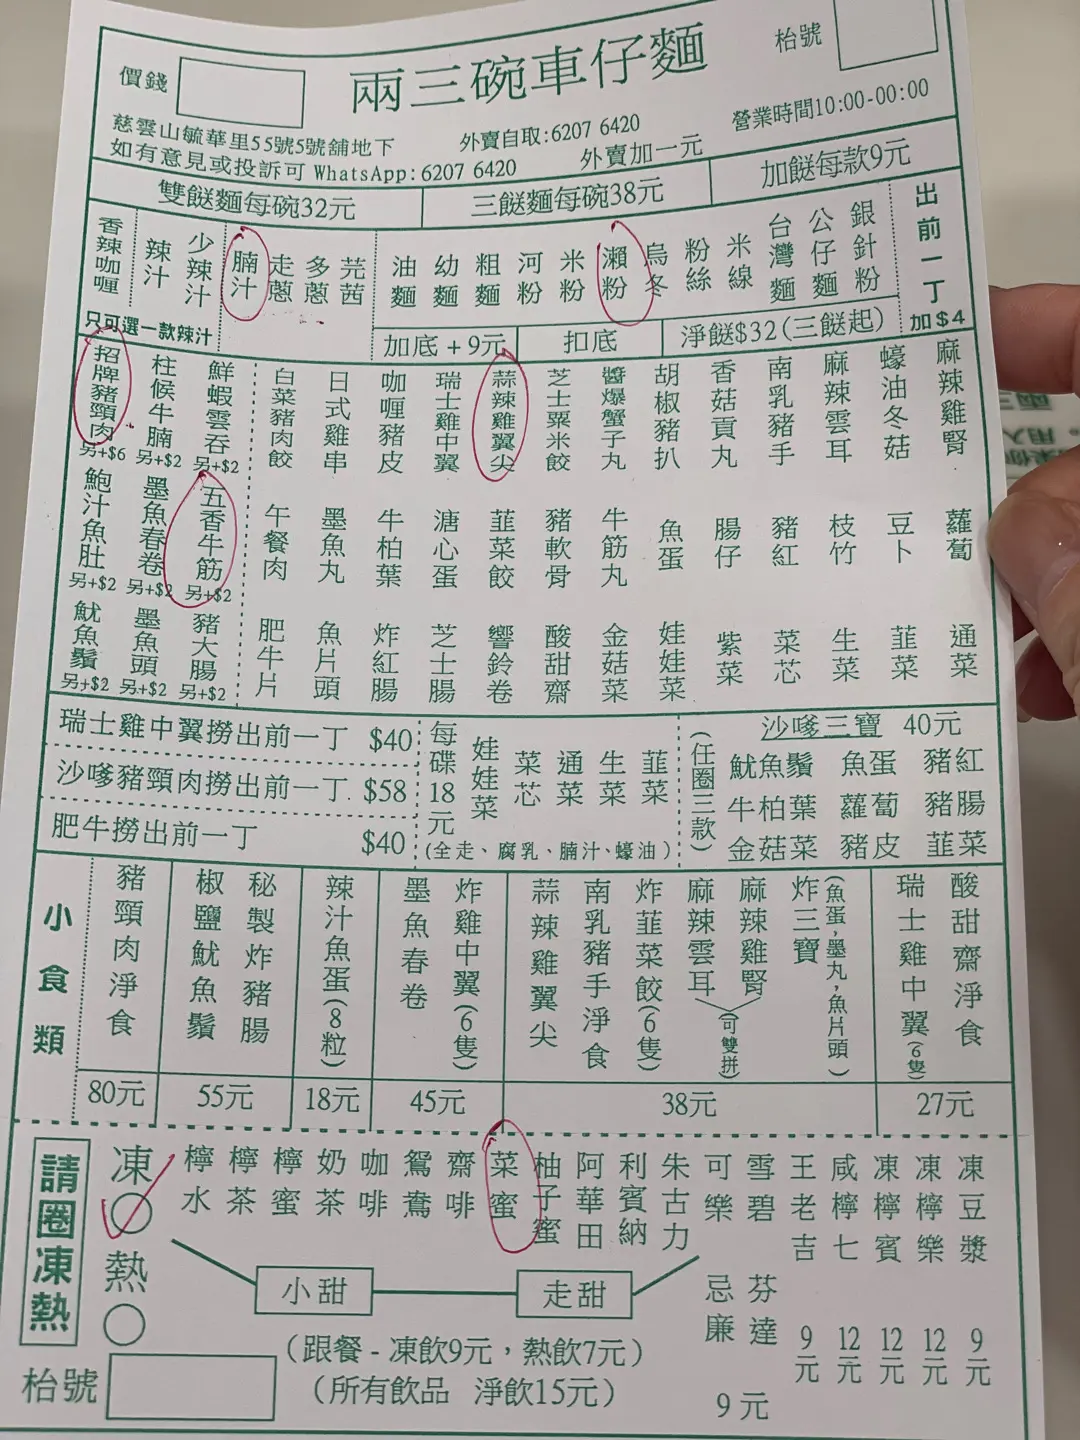 價錢
兩三碗車仔麵
枱號
慈雲山毓華里55號5號舖地下
外賣自取:6207 6420
營業時間10:00-00:00
如有意見或投訴可 WhatsApp:6207 6420
外賣加一元
雙餸麵每碗32元
三餸麵每碗38元
加餸每款9元
香辣咖喱
辣汁
少辣汁
只可選一款辣汁
腩汁
走蔥
多蔥
芫茜
油麵
幼麵
粗麵
河粉
米粉
瀨粉
烏冬
粉絲
米線
台灣麵
公仔麵
銀針粉
出前一丁
加$4
加底+9元
扣底
淨餸$32(三餸起)
招牌豬頸肉
另+$6
柱候牛腩
另+$2
鮮蝦雲吞
另+$2
白菜豬肉餃
日式雞串
咖喱豬皮
瑞士雞中翼
蒜辣雞翼尖
芝士粟米餃
醬爆蟹子丸
胡椒豬扒
香菇貢丸
南乳豬手
麻辣雲耳
蠔油冬菇
麻辣雞腎
鮑汁魚肚
另+$2
墨魚春卷
另+$2
五香牛筋
另+$2
午餐肉
墨魚丸
牛柏葉
溏心蛋
韮菜餃
豬軟骨
牛筋丸
魚蛋
腸仔
豬紅
枝竹
豆卜
蘿蔔
魷魚鬚
另+$2
墨魚頭
另+$2
豬大腸
另+$2
肥牛片
魚片頭
炸紅腸
芝士腸
響鈴卷
酸甜齋
金菇菜
娃娃菜
紫菜
菜芯
生菜
韮菜
通菜
瑞士雞中翼撈出前一丁 $40
沙嗲豬頸肉撈出前一丁 $58
肥牛撈出前一丁 $40
每碟18元
娃娃菜
菜芯
通菜
生菜
韮菜
(全走、腐乳、腩汁、蠔油)
(任圈三款)
沙嗲三寶 40元
魷魚鬚 魚蛋 豬紅
牛柏葉 蘿蔔 豬腸
金菇菜 豬皮 韮菜
小食類
豬頸肉淨食
80元
椒鹽魷魚鬚
秘製炸豬腸
55元
辣汁魚蛋(8粒)
18元
墨魚春卷
炸雞中翼(6隻)
45元
蒜辣雞翼尖
南乳豬手淨食
炸韮菜餃(6隻)
麻辣雲耳
麻辣雞腎
(可雙拼)
炸三寶
(魚蛋,墨丸,魚片頭)
38元
瑞士雞中翼(6隻)
酸甜齋淨食
27元
請圈凍熱
凍
熱
檸水
檸茶
檸蜜
奶茶
咖啡
鴛鴦
齋啡
菜蜜
柚子蜜
阿華田
利賓納
朱古力
可樂
雪碧
忌廉
芬達
9元
王老吉
9元
咸檸七
12元
凍檸賓
12元
凍檸樂
12元
凍豆漿
9元
小甜
走甜
(跟餐-凍飲9元,熱飲7元)
(所有飲品 淨飲15元)
枱號